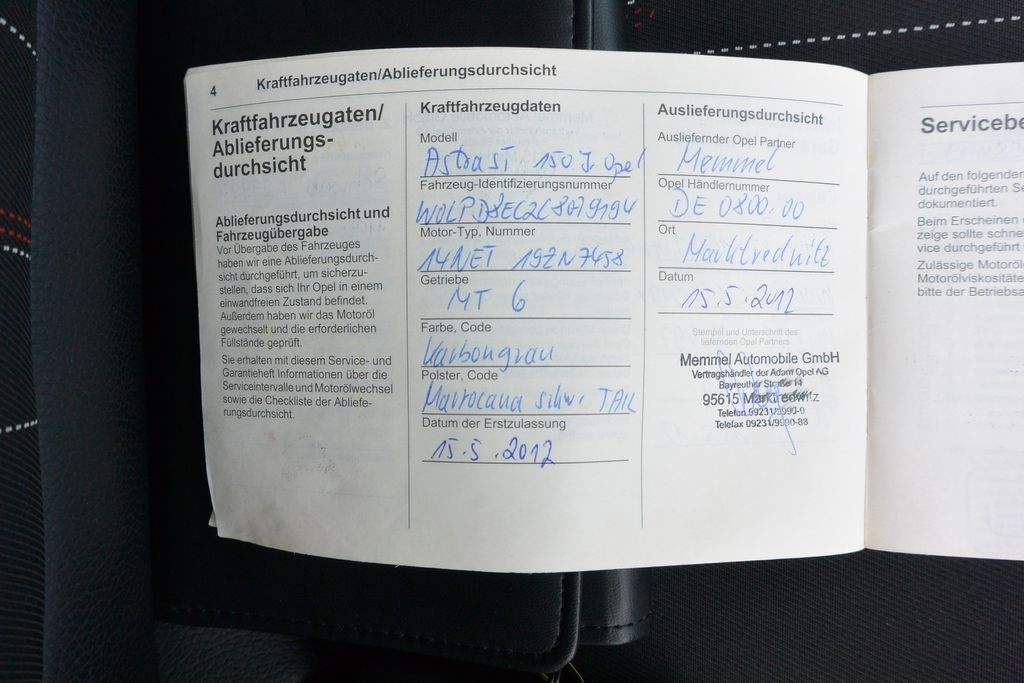 4 Kraftfahrzeugaten/Ablieferungsdurchsicht
Kraftfahrzeugaten/
Ablieferungs-
durchsicht
Ablieferungsdurchsicht und
Fahrzeugübergabe
Vor Übergabe des Fahrzeuges
haben wir eine Ablieferungsdurch-
sicht durchgeführt, um sicherzu-
stellen, dass sich Ihr Opel in einem
einwandfreien Zustand befindet.
Außerdem haben wir das Motoröl
gewechselt und die erforderlichen
Füllstände geprüft.
Sie erhalten mit diesem Service- und
Garantieheft Informationen über die
Serviceintervalle und Motorölwechsel
sowie die Checkliste der Abliefe-
rungsdurchsicht.
Kraftfahrzeugdaten
Modell
Astra ST 150 J. Opel
Fahrzeug-Identifizierungsnummer
W0LPD8EC2C8079194
Motor-Typ, Nummer
14NET 19ZN7458
Getriebe
MT 6
Farbe, Code
Karbongrau
Polster, Code
Marrocana schw. TAIL
Datum der Erstzulassung
15.5.2012
Auslieferungsdurchsicht
Ausliefernder Opel Partner
Memmel
Opel Händlernummer
DE 0800.00
Ort
Marktredwitz
Datum
15.5.2012
Stempel und Unterschrift des
liefernden Opel Partners
Memmel Automobile GmbH
Vertragshändler der Adam Opel AG
Bayreuther Straße 14
95615 Marktredwitz
Telefon 09231/9990-0
Telefax 09231/9990-88
Servicebe
Auf den folgenden
durchgeführten Se
dokumentiert.
Beim Erscheinen
zeige sollte schne
vice durchgeführt
Zulässige Motoröl
Motorölviskositäte
bitte der Betriebsa